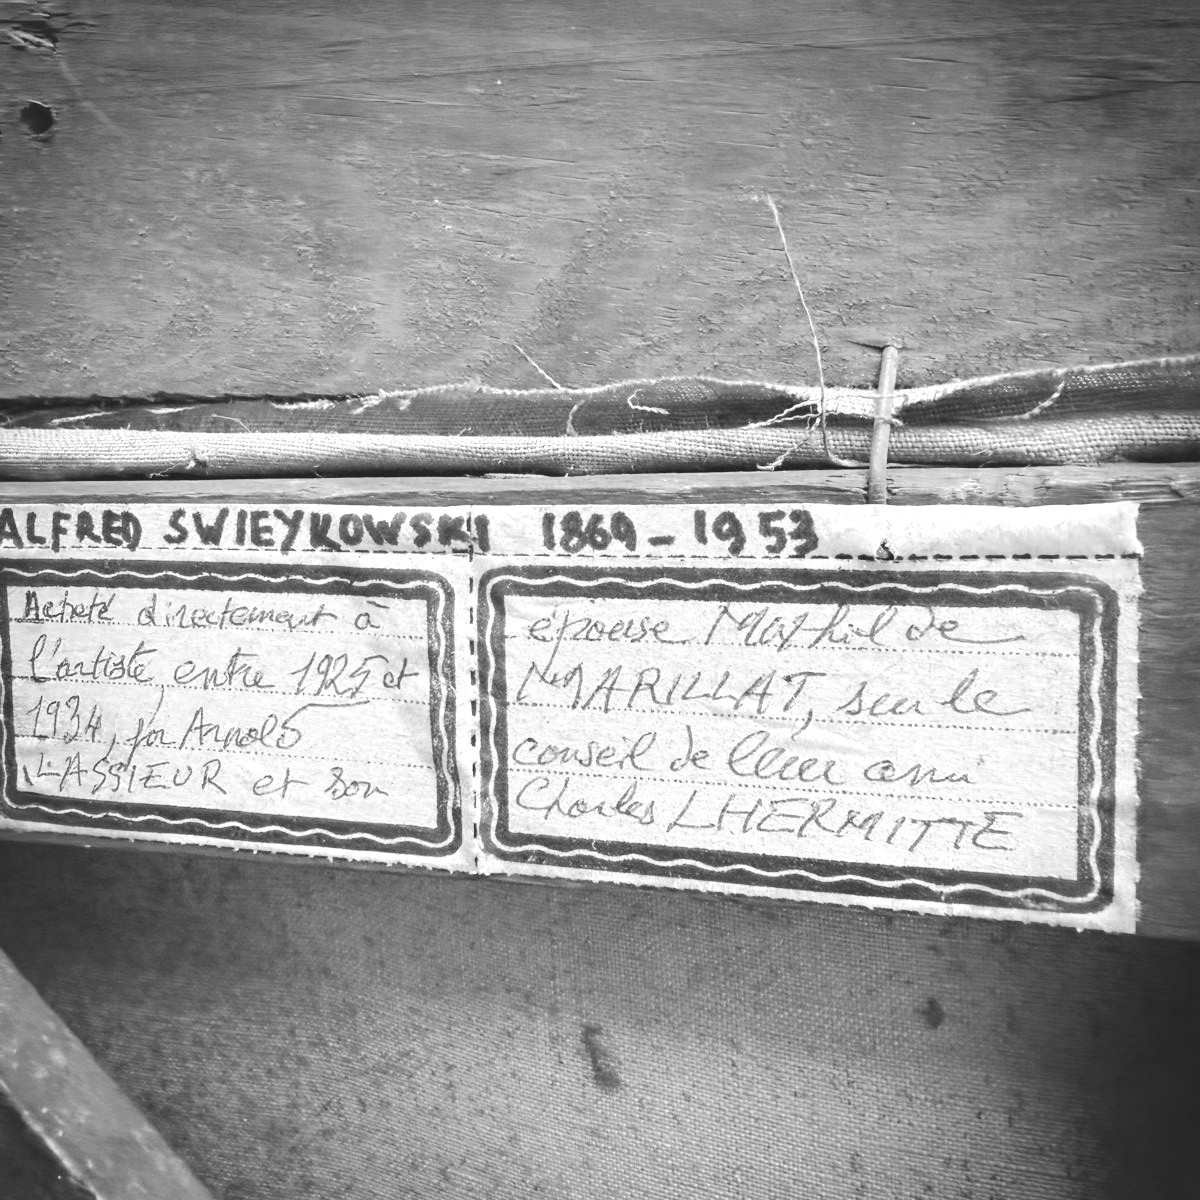 ALFRED SWIEYKOWSKI 1869-1953
Acheté directement à
l'artiste, entre 1925 et
1934, par Arnold
LASSIEUR et son
épouse Mathilde
MARILLAT, sur le
conseil de leur ami
Charles LHERMITTE